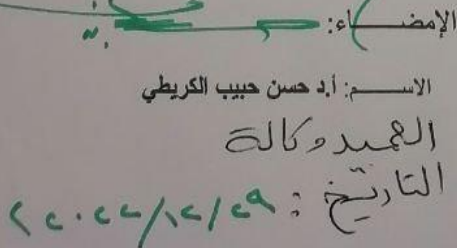 الإمضاء:
الاسم: أ.د حسن حبيب الكريطي
العميد وكالة
التاريخ: ٢٠٢٢/١٢/٢٩